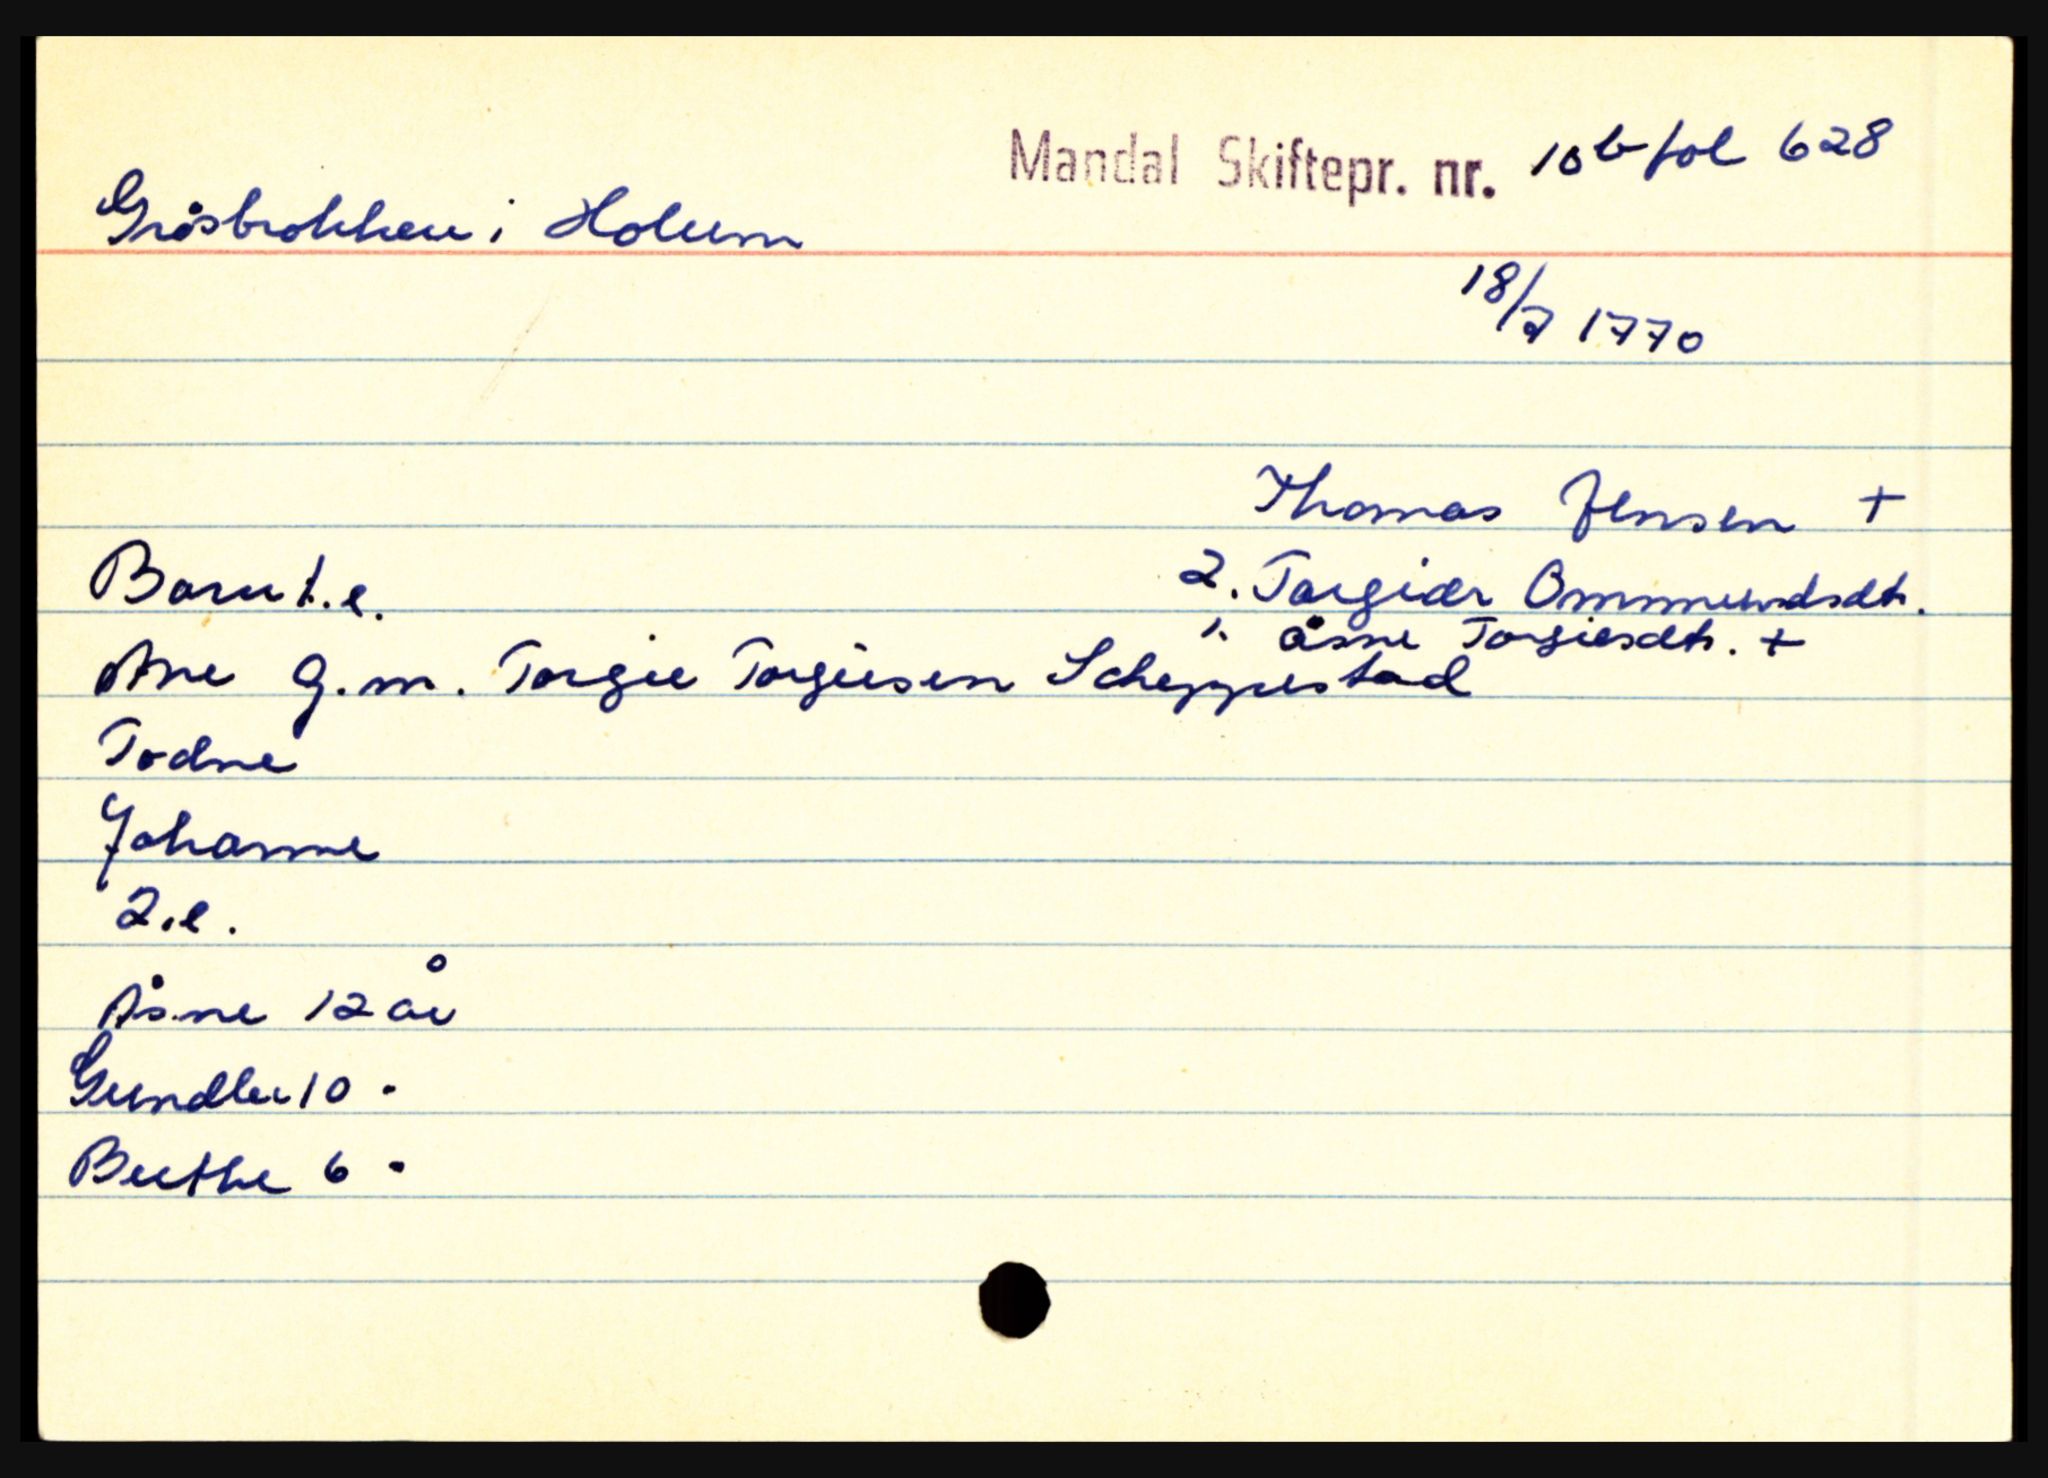 Mandal Skiftepr. nr. 10b fol 628
Gråsbrokken i Holum
18/7 1770
Thomas Jensen +
Barn 1.e. 2. Torgier Ommundsdtr.
1. Åsne Torgiesdtr. +
Ane g.m. Torgie Torgiesen Scheppestad
Todne
Johanne
2.e.
Åsne 12 år
Gundler 10 "
Berthe 6 "